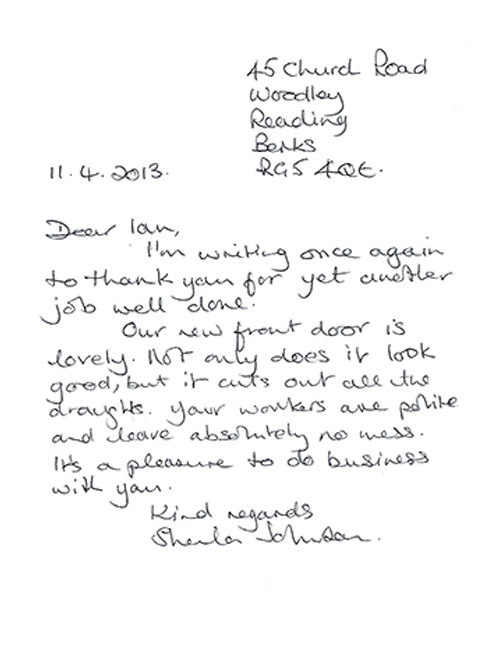 45 Church Road
Woodley
Reading
Berks
11.4.2013.
RG5 4QE.
Dear Ian,
I'm writing once again
to thank you for yet another
job well done.
Our new front door is
lovely. Not only does it look
good, but it cuts out all the
draughts. Your workers are polite
and leave absolutely no mess.
It's a pleasure to do business
with you.
Kind regards
Sheila Johnson.